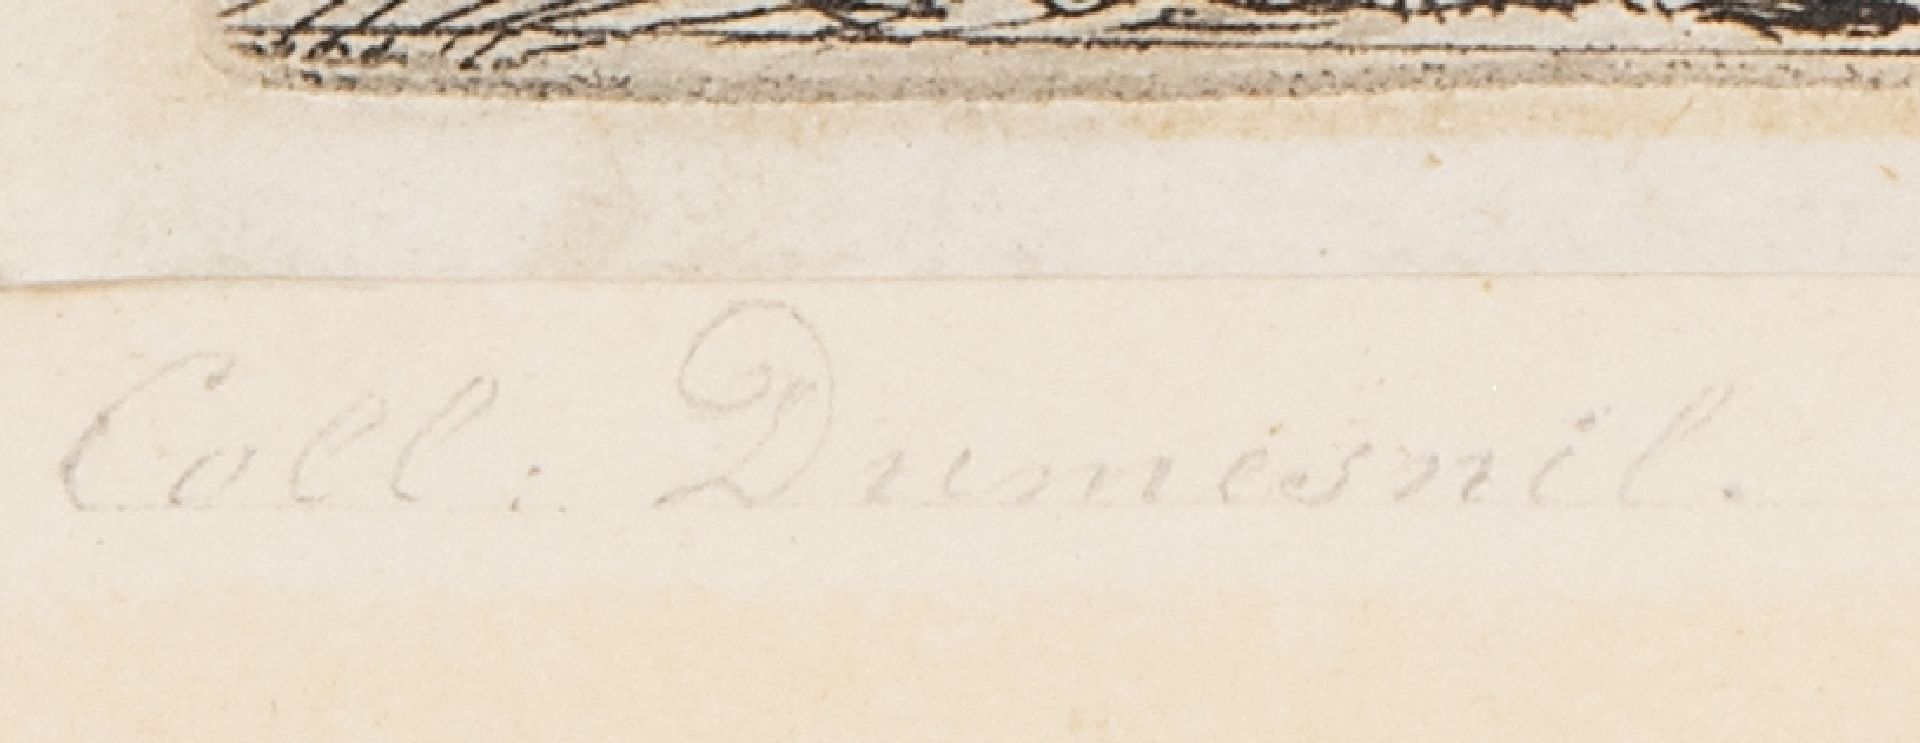 Coll. Dumesnil.